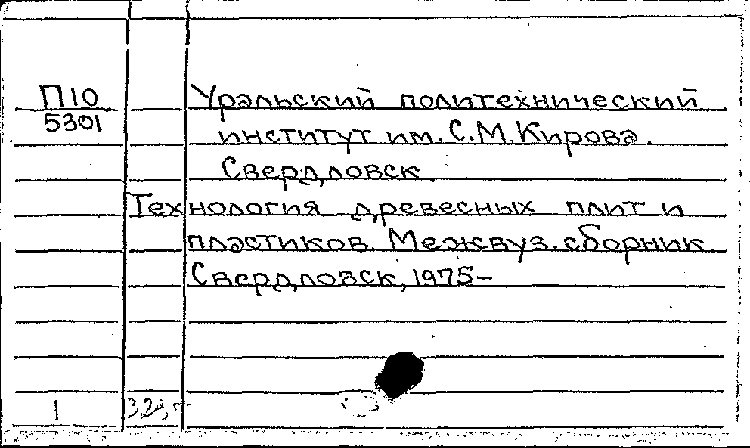 П10
5301
Уральский политехнический
институт им. С.М. Кирова.
Свердловск.
Технология древесных плит и
пластиков. Межвуз. сборник
Свердловск, 1975-
1